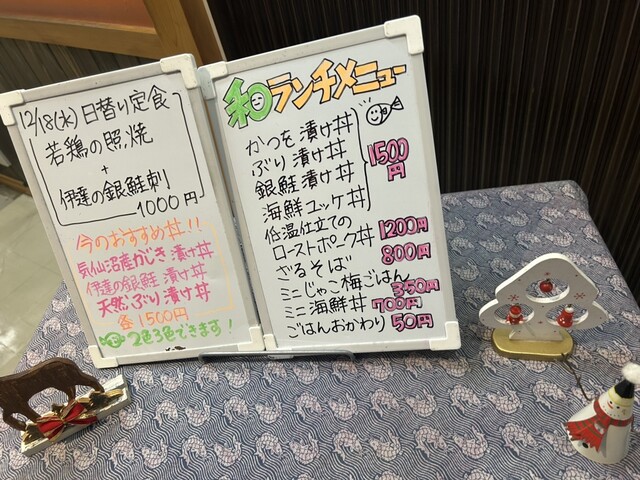 12/18(水)日替り定食
若鶏の照焼
+
伊達の銀鮭刺
1000円
今のおすすめ丼!!
気仙沼産かじき漬け丼
伊達の銀鮭漬け丼
天然ぶり漬け丼
各1500円
2色3色できます!
和ランチメニュー
かつを漬け丼
ぶり漬け丼
銀鮭漬け丼
海鮮ユッケ丼
1500円
低温仕立ての
ローストポーク丼 1200円
ざるそば 800円
ミニじゃこ梅ごはん 350円
ミニ海鮮丼 700円
ごはんおかわり 50円